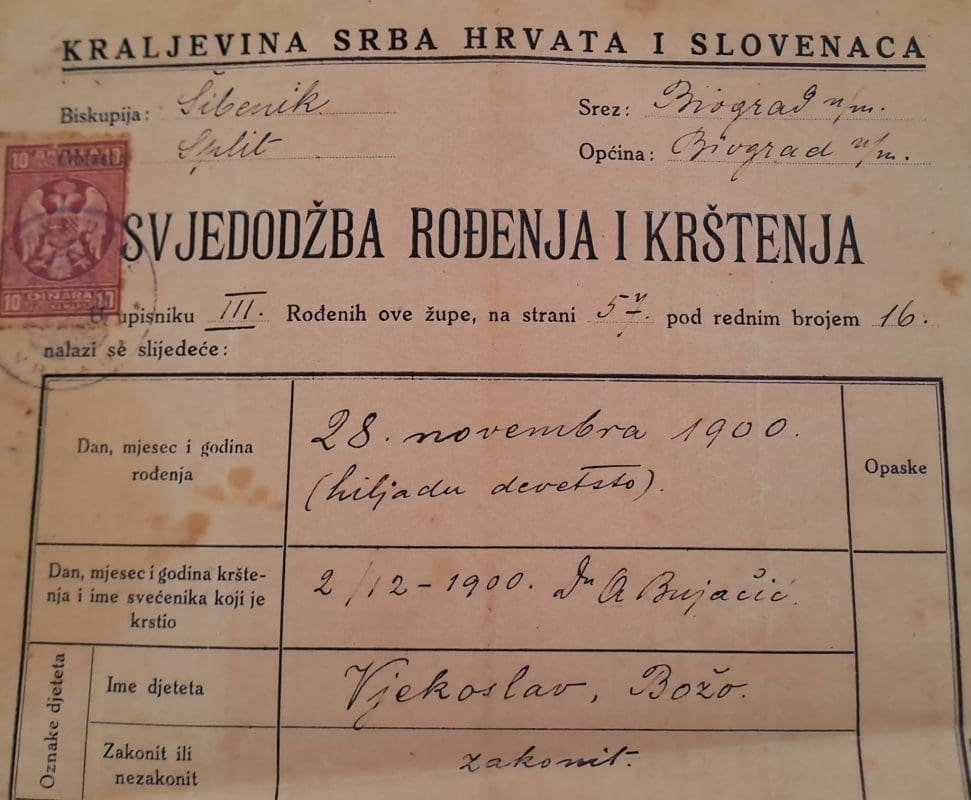 KRALJEVINA SRBA HRVATA I SLOVENACA
Biskupija: Šibenik
Srez: Biograd n/m.
Oblast Split
Općina: Biograd n/m.
SVJEDODŽBA ROĐENJA I KRŠTENJA
U upisniku III. Rođenih ove župe, na strani 57. pod rednim brojem 16.
nalazi se slijedeće:
10 10
10 DINARA 10
Dan, mjesec i godina
rođenja
28. novembra 1900.
(hiljadu devetsto).
Opaske
Dan, mjesec i godina kršte-
nja i ime svećenika koji je
krstio
2/12-1900. Dn A Bujačić.
Oznake djeteta
Ime djeteta
Vjekoslav, Božo.
Zakonit ili
nezakonit
zakonit.